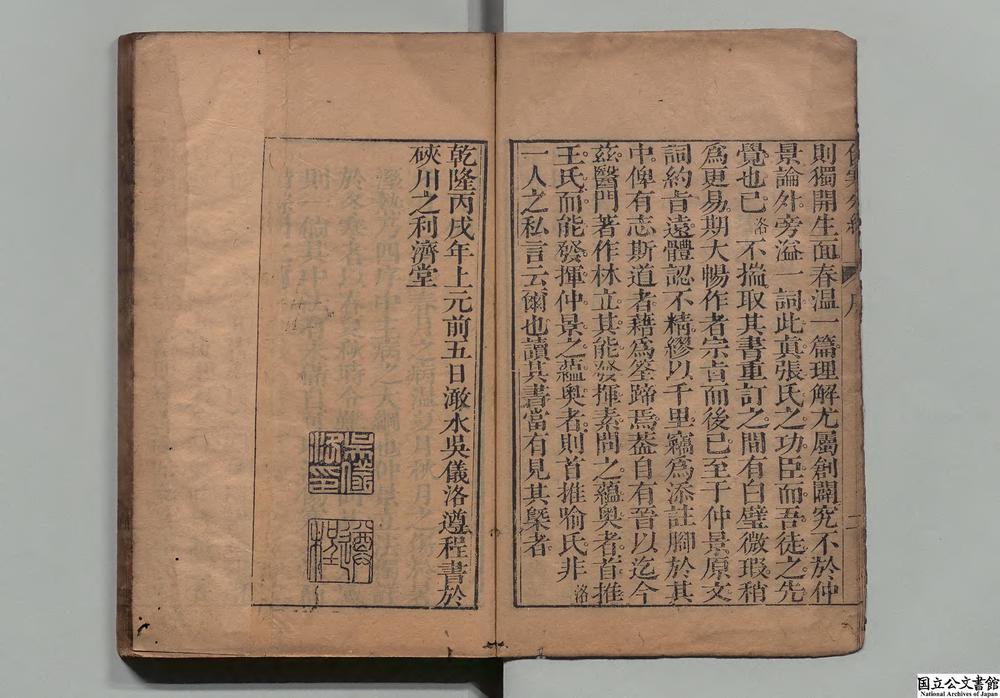 則獨開生面春温一篇理解尤屬創闢究不於仲
景論外旁溢一詞此真張氏之功臣而吾徒之先
覺也已洛不揣取其書重訂之間有白璧微瑕稍
爲更易期大暢作者宗旨而後已至于仲景原文
詞約旨遠體認不精繆以千里竊爲添註腳於其
中俾有志斯道者藉爲筌蹄焉葢自有晉以迄今
茲醫門著作林立其能發揮素問之蘊奥者首推
王氏而能發揮仲景之蘊奥者則首推喻氏非洛
一人之私言云爾也讀其書當有見其槩者
乾隆丙戌年上元前五日澉水吳儀洛遵程書於
硤川之利濟堂
吳儀洛印
遵程
国立公文書館
National Archives of Japan